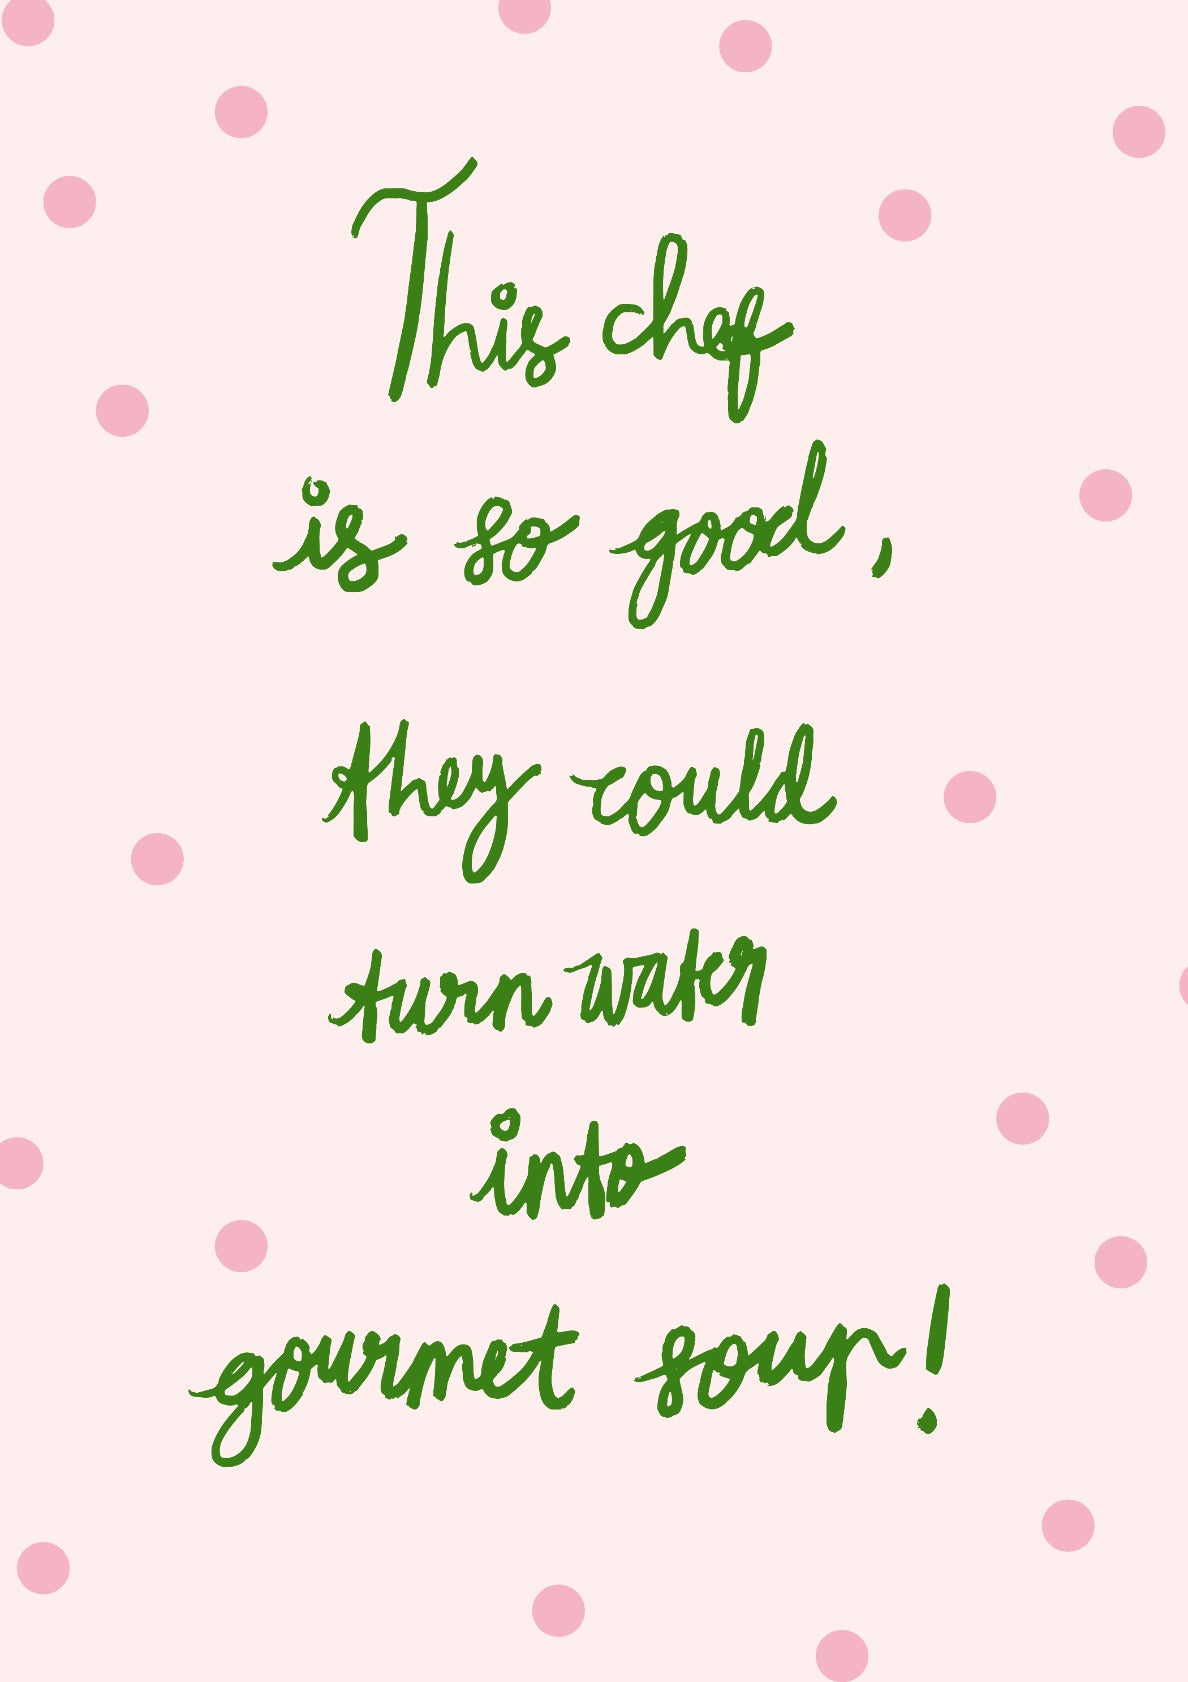 This chef
is so good,
they could
turn water
into
gourmet soup!